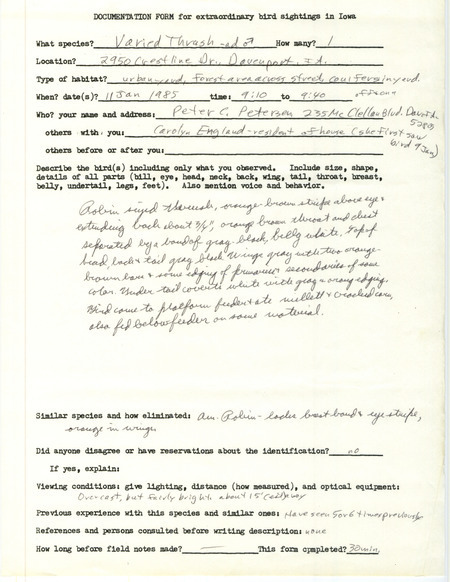 DOCUMENTATION FORM for extraordinary bird sightings in Iowa
What species? Varied Thrush - ad ♂ How many? 1
Location? 2950 Crestline Dr. Davenport, Ia.
Type of habitat? urban yard, forest area across street, conifers in yard.
When? date(s)? 11 Jan 1985 time: 9:10 to 9:40
Who? your name and address: Peter C. Petersen 235 McClellan Blvd. Davenport
52803
others with you: Carolyn England - resident of house (she first saw
bird 9 Jan)
others before or after you:
Describe the bird(s) including only what you observed. Include size, shape,
details of all parts (bill, eye, head, neck, back, wing, tail, throat, breast,
belly, undertail, legs, feet). Also mention voice and behavior.
Robin sized thrush, orange-brown stripe above eye &
extending back about 3/4", orange brown throat and chest
separated by a band of gray-black, belly white. Top of
head, back & tail gray black. Wings gray with two orange-
brown bars & some edging of primaries & secondaries of same
color. Under tail coverts white with gray & orange edging.
Bird came to platform feeder & ate millet & cracked corn,
also fed below feeder on same material.
Similar species and how eliminated: Am. Robin - lacks breast band & eye stripe,
orange in wings
Did anyone disagree or have reservations about the identification? no
If yes, explain:
Viewing conditions: give lighting, distance (how measured), and optical equipment:
Overcast, but fairly bright, about 15'
Previous experience with this species and similar ones: Have seen 5 or 6 times previously
References and persons consulted before writing description: none
How long before field notes made? — This form completed? 30 min.